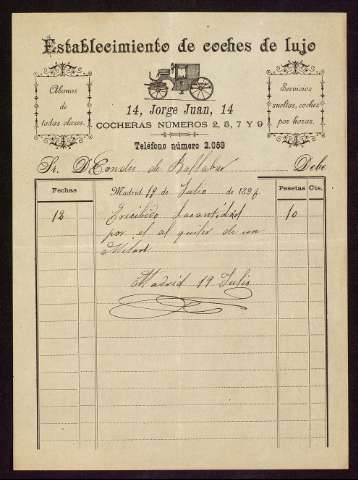 Establecimiento de coches de lujo
Abonos
de
todas clases.
Servicios
sueltos, coches
por horas.
14, Jorge Juan, 14
COCHERAS NÚMEROS 2, 5, 7 Y 9
Teléfono número 2.059
Sr. D. Condes de Ballobar Debe
Fechas Madrid 19 de Julio de 189 Pesetas Cts.
18 Recibido la cantidad 10
por el al quiler de un
Milord
Madrid 19 Julio